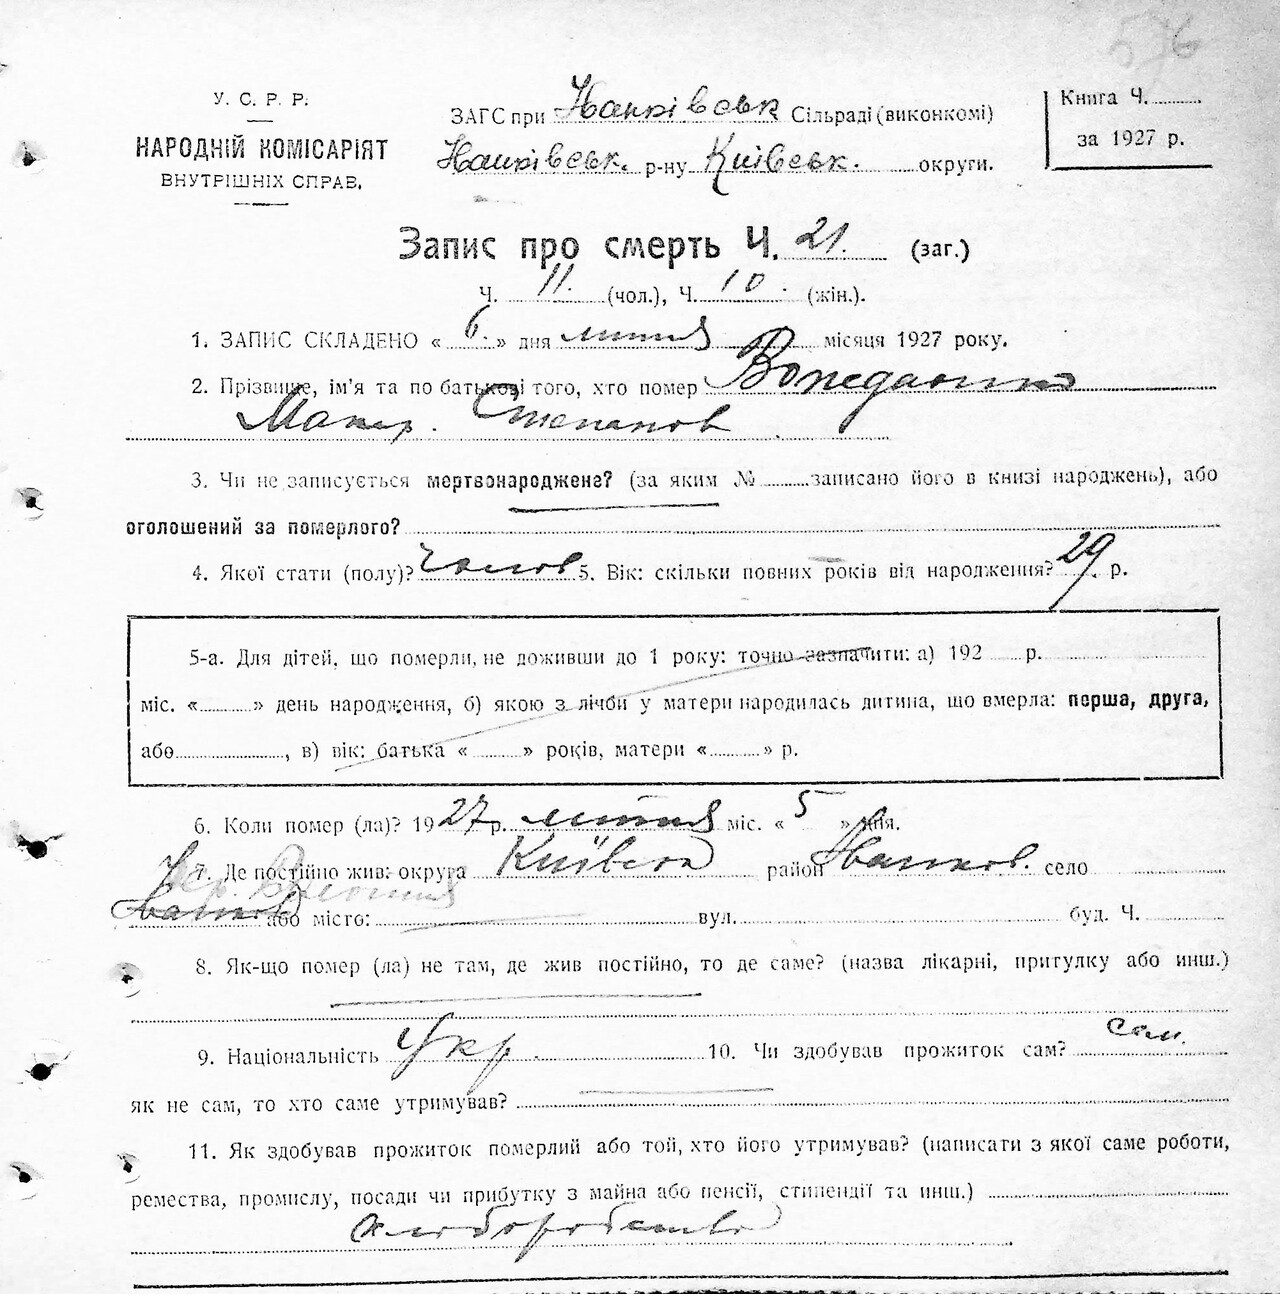 576
У. С. Р. Р.
НАРОДНІЙ КОМІСАРІЯТ
ВНУТРІШНІХ СПРАВ.
ЗАГС при Іванківськ Сільраді (виконкомі)
Іванківськ. р-ну Київськ. округи.
Книга Ч.
за 1927 р.
Запис про смерть Ч. 21. (заг.)
Ч. 11. (чол.), Ч. 10. (жін.).
1. ЗАПИС СКЛАДЕНО « 6. » дня лютня місяця 1927 року.
2. Прізвище, ім'я та по батькові того, хто помер
Макар. Степанов
3. Чи не записується мертвонароджене? (за яким № записано його в книзі народжень), або
оголошений за померлого?
4. Якої стати (полу)? чолов 5. Вік: скільки повних років від народження? 29 р.
5-а. Для дітей, що померли, не доживши до 1 року: точно зазначити: а) 192 р.
міс. « » день народження, б) якою з лічби у матери народилась дитина, що вмерла: перша, друга,
або , в) вік: батька « » років, матери « » р.
6. Коли помер (ла)? 1927 р. лютня міс. « 5 » дня.
7. Де постійно жив: округа Київськ район Іванков. село
Іванков або місто: вул. буд. Ч.
8. Як-що помер (ла) не там, де жив постійно, то де саме? (назва лікарні, притулку або инш.)
9. Національність Укр. 10. Чи здобував прожиток сам? сам.
як не сам, то хто саме утримував?
11. Як здобував прожиток померлий або той, хто його утримував? (написати з якої саме роботи,
ремества, промислу, посади чи прибутку з майна або пенсії, стипендії та инш.)
хлиборобство